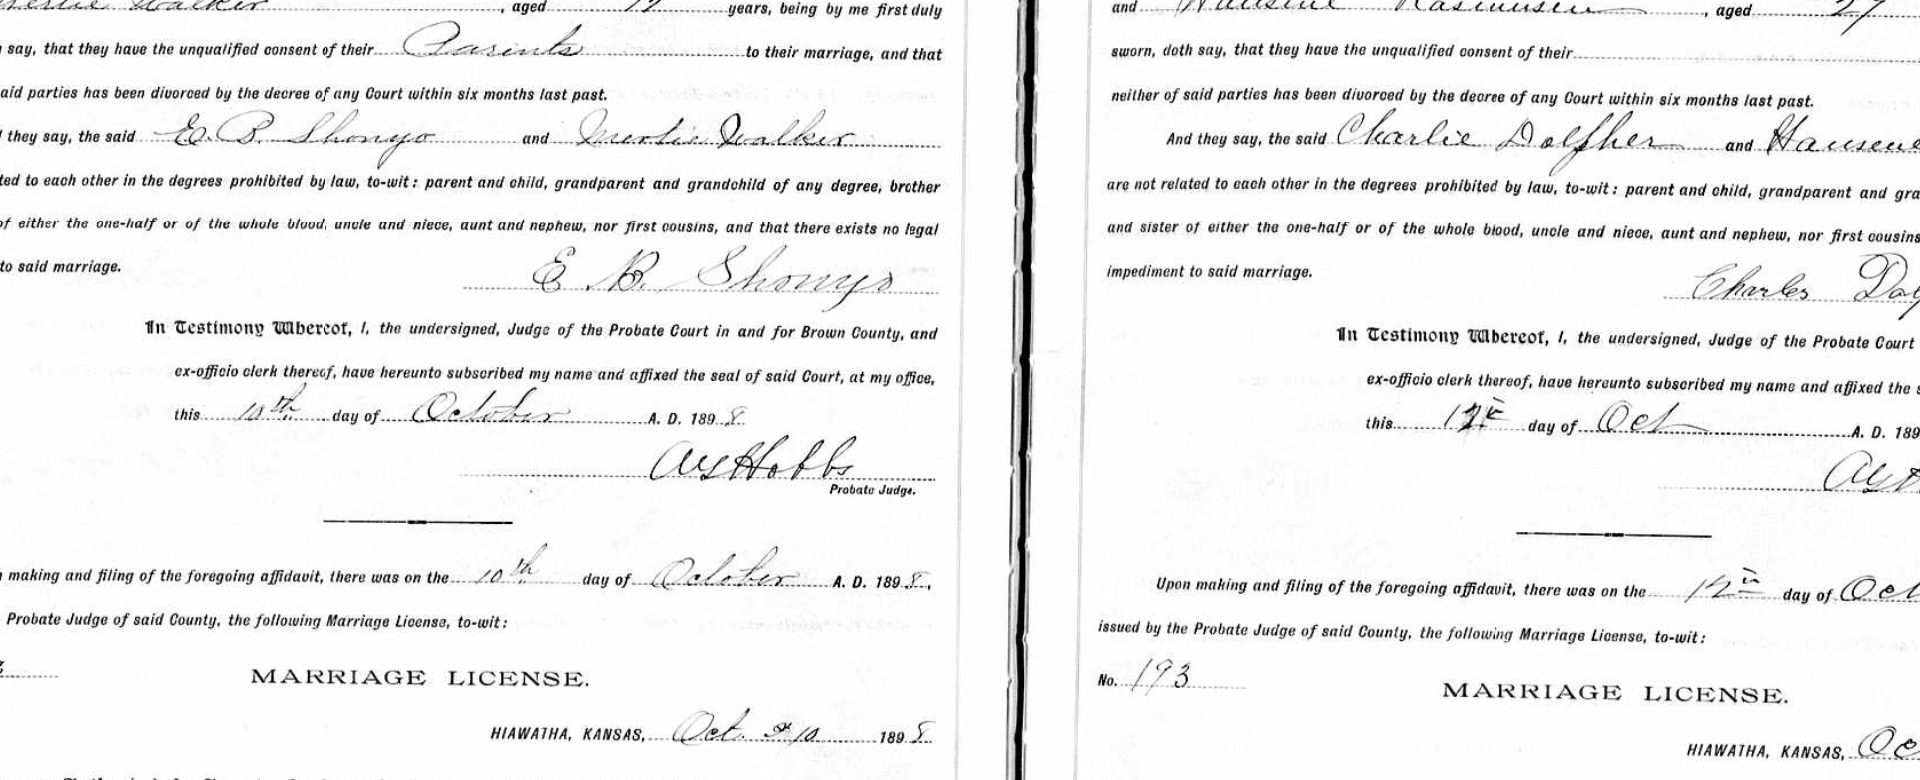 Walker, aged 19 years, being by me first duly
say, that they have the unqualified consent of their Parents to their marriage, and that
aid parties has been divorced by the decree of any Court within six months last past.
they say, the said E. B. Shonyo and Mertie Walker
ted to each other in the degrees prohibited by law, to-wit: parent and child, grandparent and grandchild of any degree, brother
of either the one-half or of the whole blood, uncle and niece, aunt and nephew, nor first cousins, and that there exists no legal
to said marriage.
E B. Shonyo
In Testimony Whereof, I, the undersigned, Judge of the Probate Court in and for Brown County, and
ex-officio clerk thereof, have hereunto subscribed my name and affixed the seal of said Court, at my office,
this 10th day of October A. D. 1898
Hobbs
Probate Judge.
making and filing of the foregoing affidavit, there was on the 10th day of October A. D. 1898,
Probate Judge of said County, the following Marriage License, to-wit:
MARRIAGE LICENSE.
HIAWATHA, KANSAS, Oct. 10 1898
and Rasmussen, aged 27
sworn, doth say, that they have the unqualified consent of their
neither of said parties has been divorced by the decree of any Court within six months last past.
And they say, the said Charlie Dolfher and Hansene
are not related to each other in the degrees prohibited by law, to-wit: parent and child, grandparent and gra
and sister of either the one-half or of the whole blood, uncle and niece, aunt and nephew, nor first cousins
impediment to said marriage.
Charles
In Testimony Whereof, I, the undersigned, Judge of the Probate Court
ex-officio clerk thereof, have hereunto subscribed my name and affixed the s
this 12th day of Oct A. D. 189
Upon making and filing of the foregoing affidavit, there was on the 12th day of Oct
issued by the Probate Judge of said County, the following Marriage License, to-wit:
No. 193
MARRIAGE LICENSE.
HIAWATHA, KANSAS, Oc